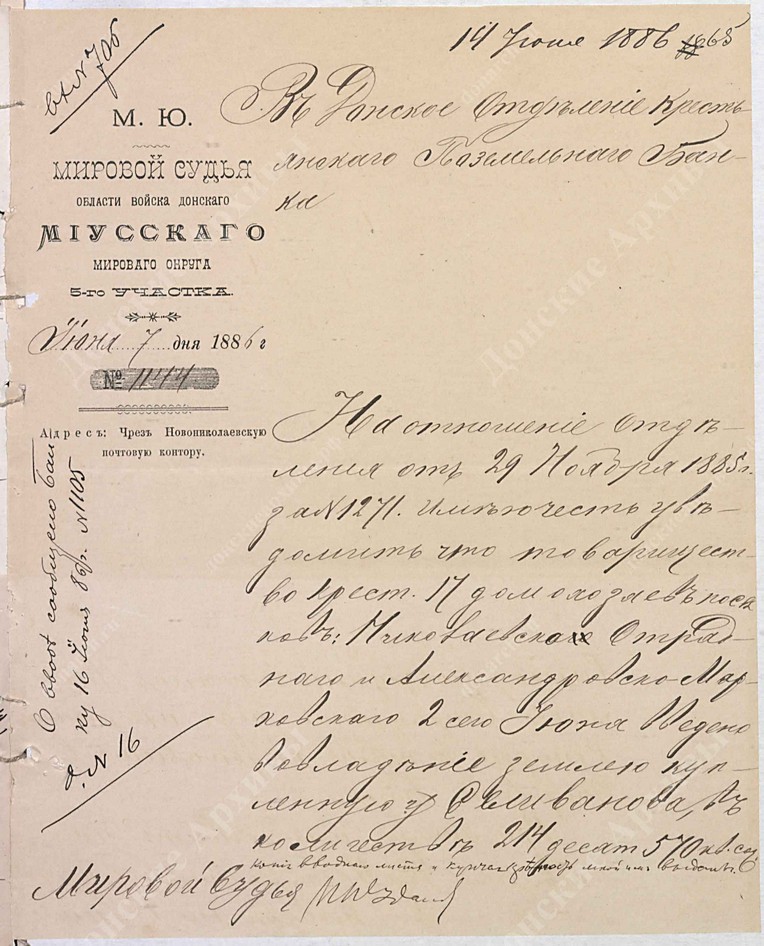 14 Июня 1886
вх № 706
М. Ю.
МИРОВОЙ СУДЬЯ
ОБЛАСТИ ВОЙСКА ДОНСКАГО
МІУССКАГО
МИРОВАГО ОКРУГА
5-го УЧАСТКА.
Іюня 7 дня 1886 г
№ 1144
Адресъ: Чрезъ Новониколаевскую
почтовую контору.
Въ Донское Отдѣленіе Кресть-
янскаго Поземельнаго Бан-
ка
На отношеніе Отдѣ-
ленія отъ 29 Ноября 1885 г.
за № 1271. Имѣю честь увѣ-
домить что товарищест-
во Крест. 17 домохозяевъ посел
ковъ: Николаевскаго Отрад-
наго и Александровско-Мар-
ковскаго 2 сего Іюня введено
во владѣніе землею куп-
ленную у Селиванова, въ
количествѣ 214 десят 570 кв. саж
копія вводнаго листа и купчая крѣпость мной
Мировой Судья
О вводѣ сообщено Бан
ку 16 Іюня 86 г. № 1105
д. № 16
Донские Архивы